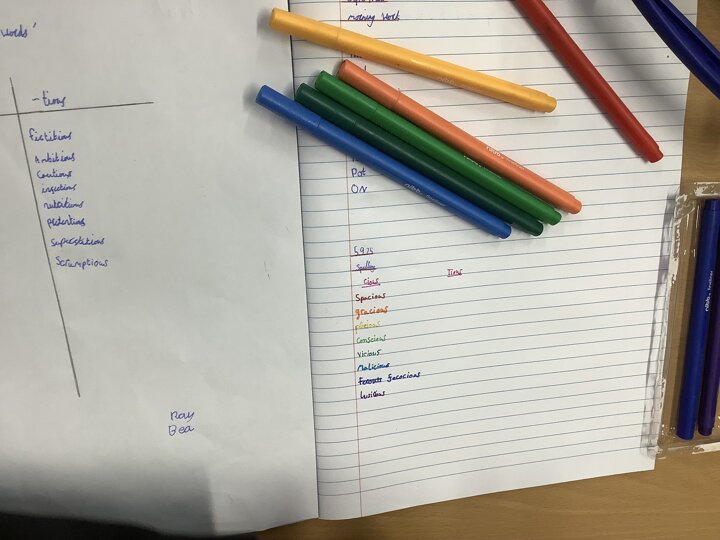 words'
-tious
fictitious
Ambitious
Cautious
infectious
nutritious
Pretentious
Superstitious
Scrumptious
Ray
Bea
Morning Work
Pot
ON
5.9.25
Spelling
Cious
Tious
Spacious
gracious
Conscious
Vicious
Malicious
ferocious